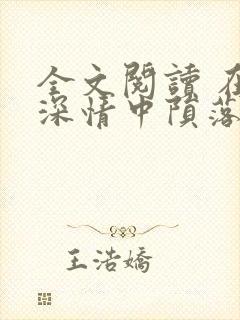 全文閱讀 在
深情中隕落
王浩嬌